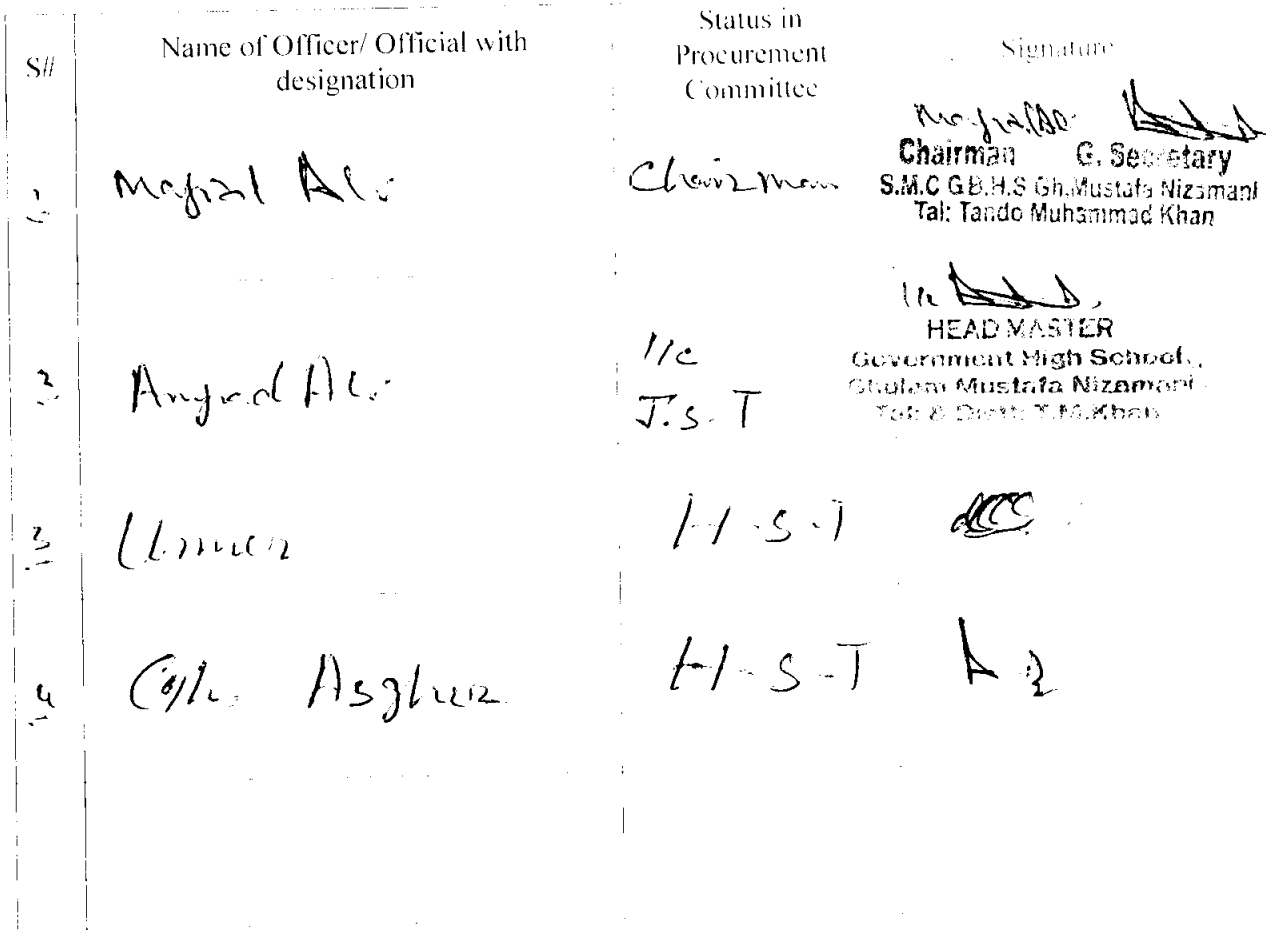 S#
Name of Officer/ Official with
designation
Status in
Procurement
Committee
Signature
1
Ali
Chairman
Chairman G. Secretary
S.M.C G.B.H.S Gh.Mustafa Nizamani
Tal: Tando Muhammad Khan
2
Amjad Ali
I/c
J.S.T
I/c
HEAD MASTER
Government High School,
Ghulam Mustafa Nizamani
Tal: & Distt: T.M.Khan
3
Umer
H.S.T
4
Gh. Asghar
H.S.T